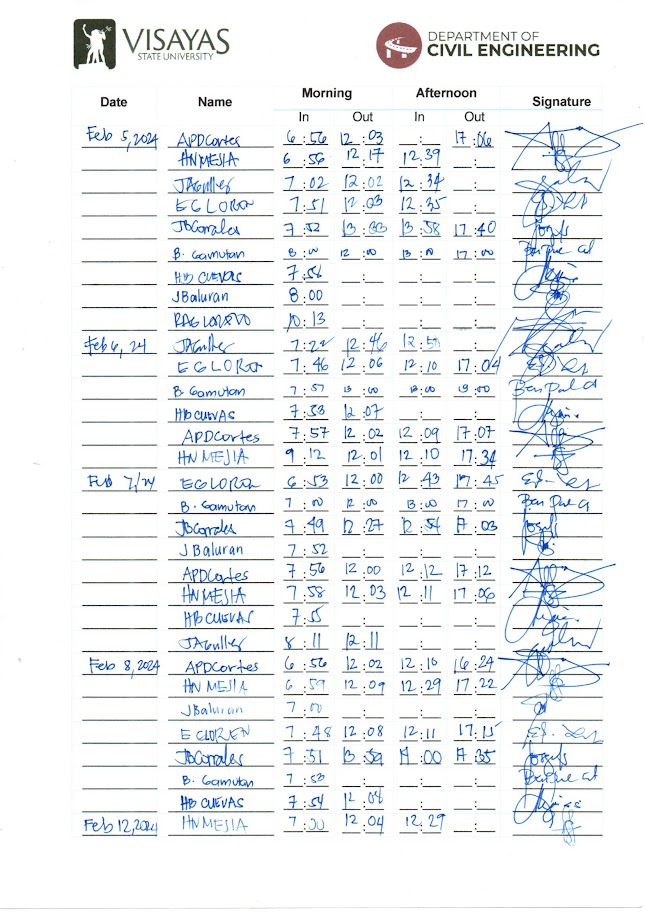 VISAYAS
STATE UNIVERSITY
DEPARTMENT OF
CIVIL ENGINEERING
Date Name Morning Afternoon Signature
In Out In Out
Feb 5, 2024 APDCortes 6:56 12:03 : 17:06
HNMEJIA 6:56 12:17 12:39 :
JAGuller 7:02 12:02 12:34 :
EGLOREN 7:51 12:03 12:35 :
JBCorrales 7:52 13:58 17:40
B. Gamutan 8:00 12:00 13:00 17:00 Ben Paul G
HB CUEVAS 7:56 : : :
JBaluran 8:00 : : :
10:13 : : :
Feb 6, 24 JAGuller 7:22 12:46 12:58 :
EGLOREN 7:46 12:06 12:10 17:04
B Gamutan 7:57 :00 :00 :00 Ben Paul G
HB CUEVAS 7:53 12:07 : :
APDCortes 7:57 12:02 12:09 17:07
HN MEJIA 9:12 12:01 12:10 17:34
Feb 7/24 EGLOREN 6:53 12:00 12:43 17:45
B. Gamutan 7:00 12:00 13:00 17:00 Ben Paul G
JBCorrales 7:49 12:27 12:54 17:03
JBaluran 7:52 : : :
APDCortes 7:56 12:00 12:12 17:12
HNMEJIA 7:58 12:03 12:11 17:06
HB CUEVAS 7:55 : : :
JAGuller 8:11 12:11 : :
Feb 8, 2024 APDCortes 6:56 12:02 12:10 16:24
HN MEJIA 6:59 12:09 12:29 17:22
JBaluran 7:00 : : :
EGLOREN 7:48 12:08 12:11 17:15
JBCorrales 7:51 13:59 14:00 17:35
B. Gamutan 7:53 : : : Ben Paul G
HB CUEVAS 7:54 12:04 : :
Feb 12, 2024 HNMEJIA 7:00 12:04 12:29 :